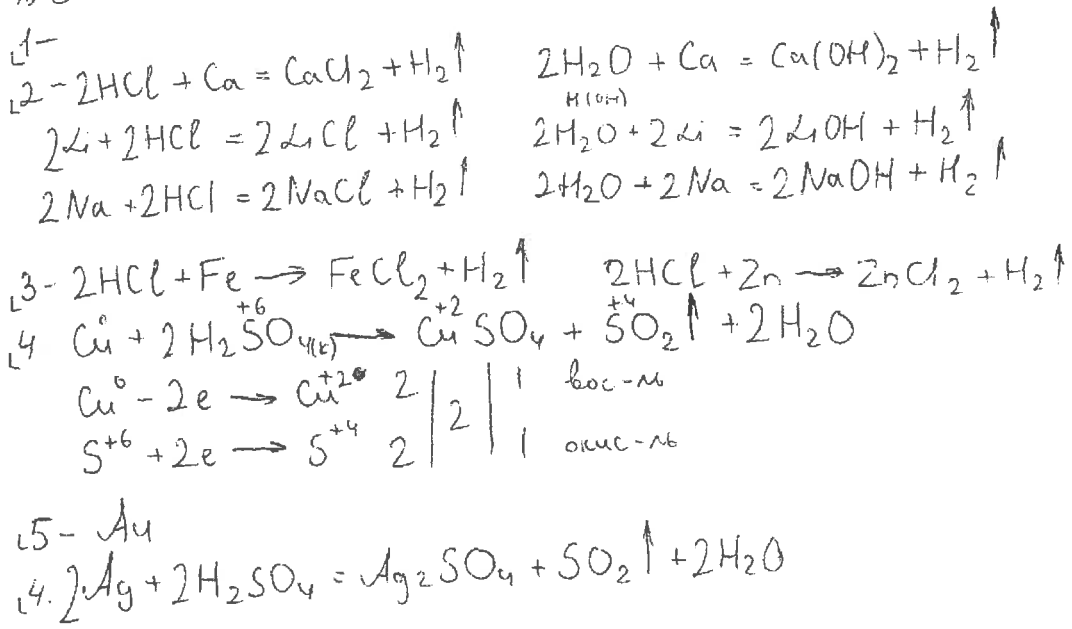 1-
2- 2HCl + Ca = CaCl₂ + H₂↑ 2H₂O + Ca = Ca(OH)₂ + H₂↑
H(OH)
2Li + 2HCl = 2LiCl + H₂↑ 2H₂O + 2Li = 2LiOH + H₂↑
2Na + 2HCl = 2NaCl + H₂↑ 2H₂O + 2Na = 2NaOH + H₂↑
3- 2HCl + Fe → FeCl₂ + H₂↑ 2HCl + Zn → ZnCl₂ + H₂↑
4 Cu⁰ + 2H₂S⁺⁶O₄(к) → Cu⁺²SO₄ + S⁺⁴O₂↑ + 2H₂O
Cu⁰ - 2e → Cu⁺² 2 | 2 | 1 вос-ль
S⁺⁶ + 2e → S⁺⁴ 2 | | 1 окис-ль
5- Au
4. 2Ag + 2H₂SO₄ = Ag₂SO₄ + SO₂↑ + 2H₂O